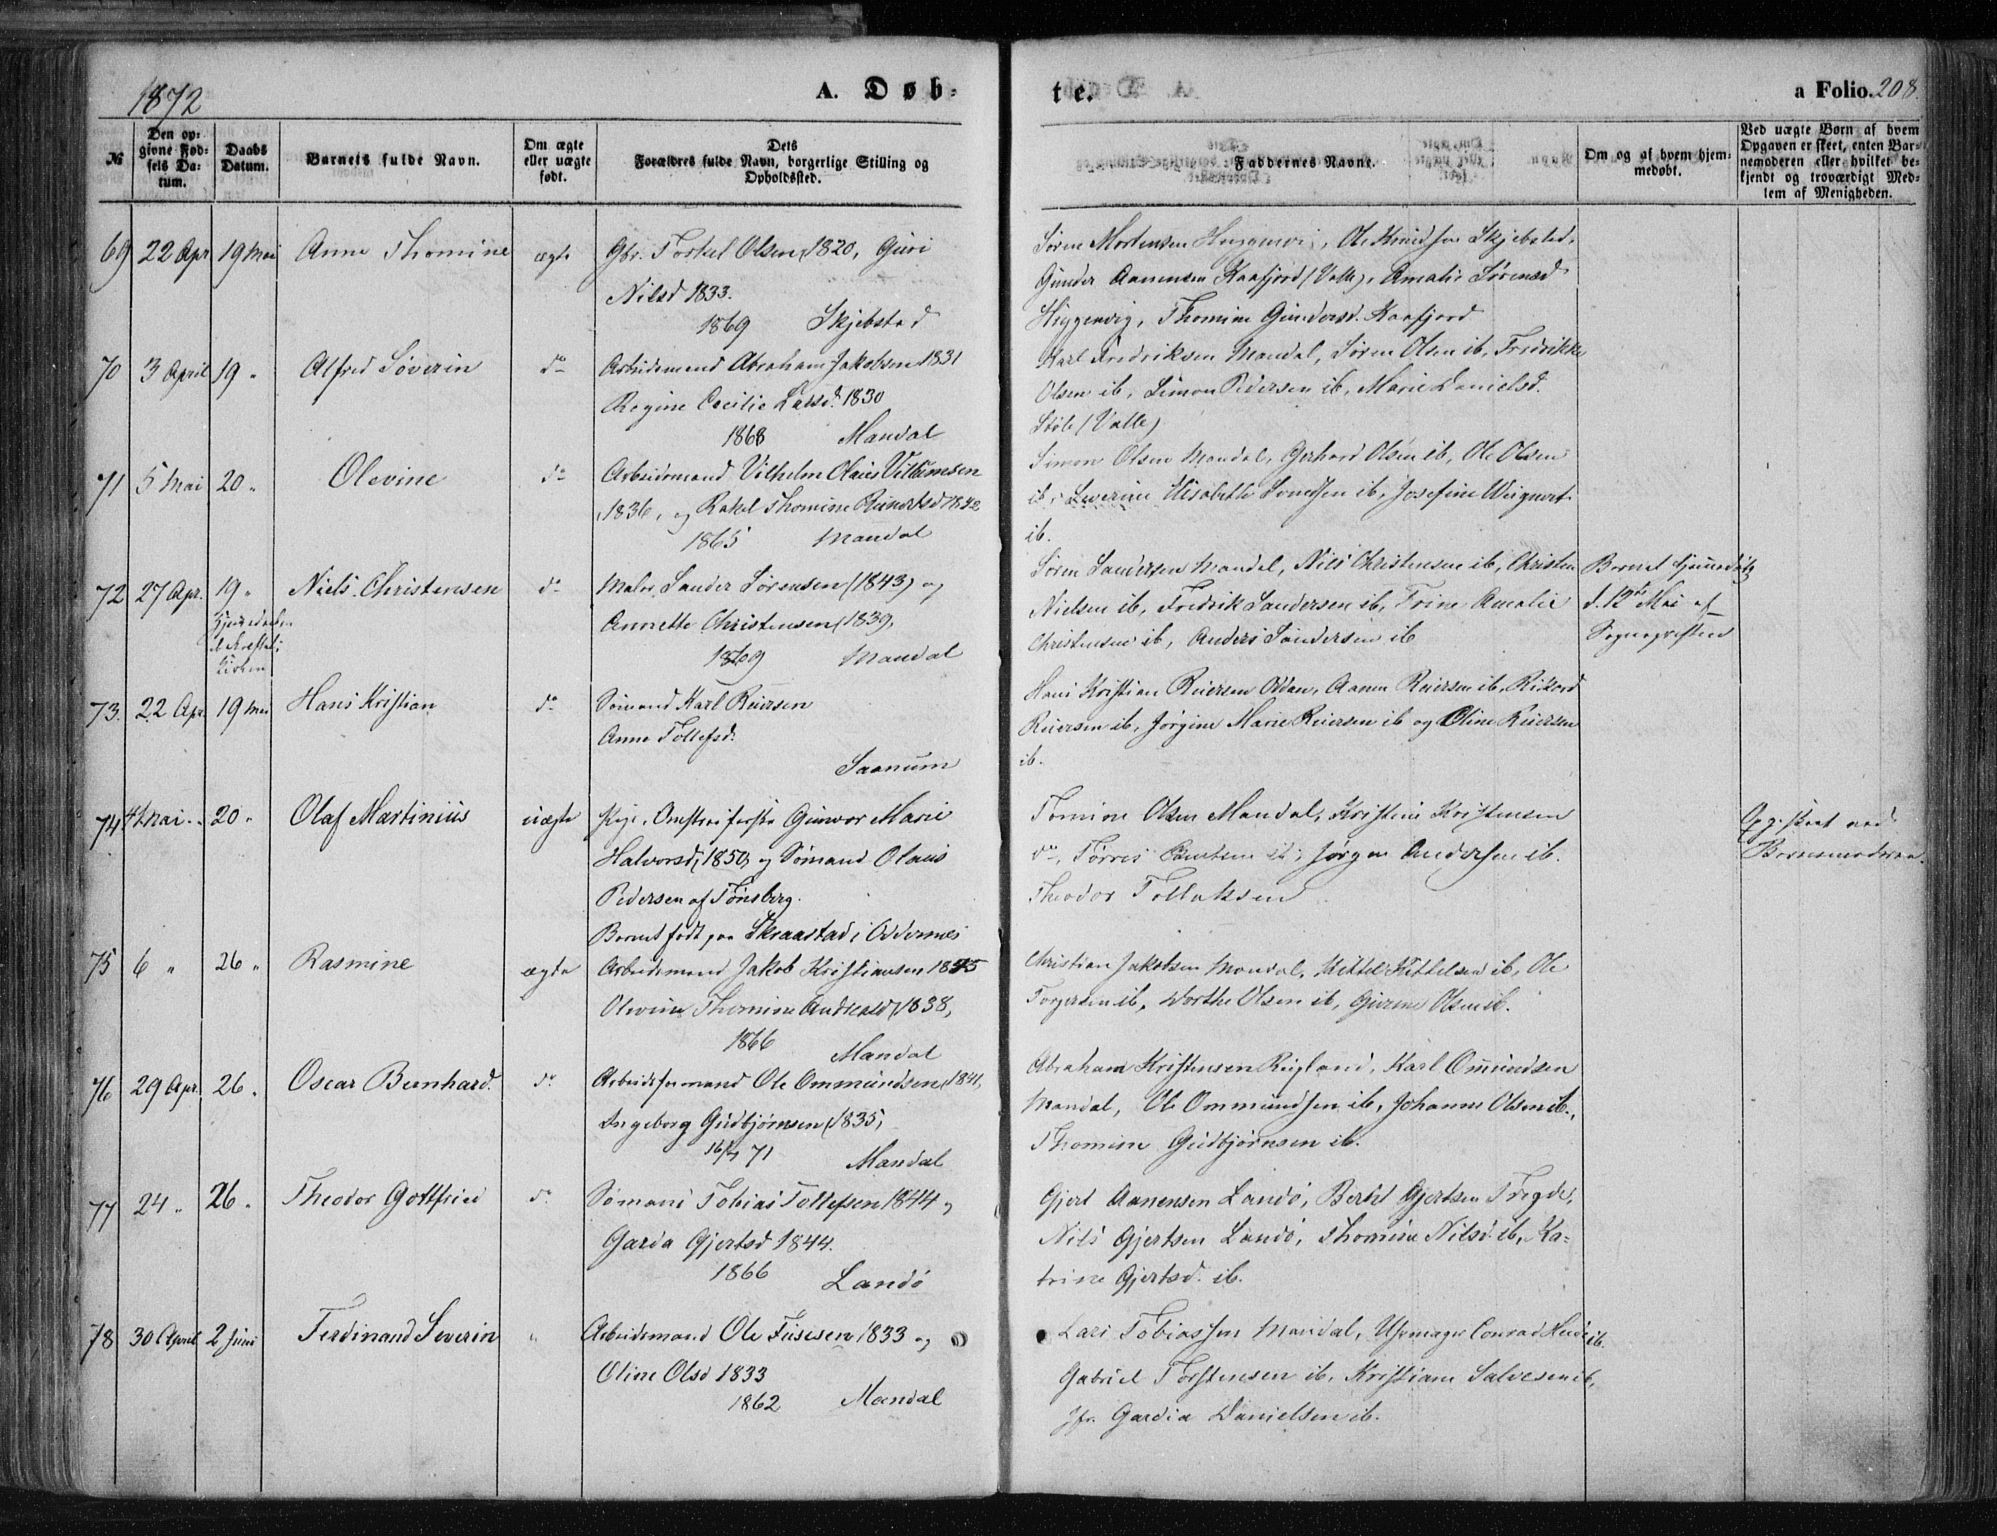 1872
A. Døb-
te.
a Folio. 208.
№
Den opgivne Fødsels Datum.
Daabs Datum.
Barnets fulde Navn.
Om ægte eller uægte født.
Dets Forældres fulde Navn, borgerlige Stilling og Opholdssted.
Faddernes Navne.
Om og af hvem hjemmedøbt.
Ved uægte Børn af hvem Opgaven er skeet, enten Barnemoderen eller hvilket bekjendt og troværdigt Medlem af Menigheden.
69 22 Apr 19 Mai Anne Thomine ægte Gbr. Torkel Olsen (1820, Guri
Nilsd 1833.
1869 Skjebstad
Søren Mortensen, Ole Knudsen Skjebstad,
Gunder Aanensen Kaafjord (Valle), Amalie Sørensd
Higgenvig, Thomine Gundersd. Kaafjord
70 3 April 19 " Alfred Søverin do Arbeidsmand Abraham Jakobsen 1831
Regine Cecilie Larsd. 1830
1868 Mandal
Karl Fredriksen Mandal, Søren Olsen ib, Fredrikke
Olsen ib, Simon Pedersen ib, Marie Danielsd.
Støle (Valle)
71 5 Mai 20 " Olevine do Arbeidsmand Vilhelm Olaus Villumsen
1836, og Rakel Thomine Reinertsd 1842
1865 Mandal
Simon Olsen Mandal, Gerhard Olsen ib, Ole Olsen
ib, Severine Elisabeth ib, Josefine
ib.
72 27 Apr. 19 " Niels Christensen do Maler Sander Sørensen (1843) og
Annette Christensen (1839,
1869 Mandal
Kirken
Søren Sandersen Mandal, Niels Christensen ib, Christen
Nielsen ib, Fredrik Sandersen ib, Trine Amalie
Christensen ib, Anders Sandersen ib
Barnet hjemmedøbt
d. 12te Mai af
Sognepresten
73. 22 Apr 19 Mai Hans Kristian do Sømand Karl Reiersen
Anne Tollefsd.
Saanum
Hans Kristian Reiersen Odden, Aanen Reiersen ib, Rikard
Reiersen ib, Jørgine Marie Reiersen ib og Oline Reiersen
ib.
74 4 Mai 20 " Olaf Martinius uægte Pige Gunvor Marie
Halvorsd, 1850, og Sømand Olaus
Pedersen af Tønsberg.
Barnet født paa Skraastad i Oddernes
Tomine Olsen Mandal, Kristine Kristensen
do, Tørres ib, Jørgen Andersen ib.
Theodor Tollaksen
Opg. skeet ved
Barnemoderen.
75 6 " 26 " Rasmine ægte Arbeidsmand Jakob Kristiansen 1845
Olevine Thomine Andreasd (1838,
1866 Mandal
Christian Jakobsen Mandal, Kittel Kittelsen ib, Ole
Torgersen ib, Dorthe Olsen ib, Olsen ib.
76 29 Apr. 26 " Oscar Bernhard. do Arbeidsformand Ole Ommundsen (1841,
Ingeborg Gudbjørnsen (1835,
71 Mandal
Abraham Kristensen Rugland, Karl Omundsen
Mandal, Ole Ommundsen ib, Johanne Olsen ib,
Thomine Gudbjørnsen ib.
77 24 " 26 " Theodor Gottfried do Sømand Tobias Tollefsen 1844 og
Garda Gjertsd 1844.
1866 Landø
Gjert Aanensen Landø, Bertel Gjertsen Tregde,
Nils Gjertsen Landø, Thomine Nilsd. ib, Ka-
trine Gjertsd. ib.
78 30 April 2 Juni Ferdinand Severin " Arbeidsmand Ole 1833 og
Oline Olsd 1833
1862 Mandal
Lars Tobiassen Mandal, Uhrmager Conrad ib.
Gabriel Torstensen ib, Kristiane Salvesen ib,
Jfr. Gardia Danielsen ib.